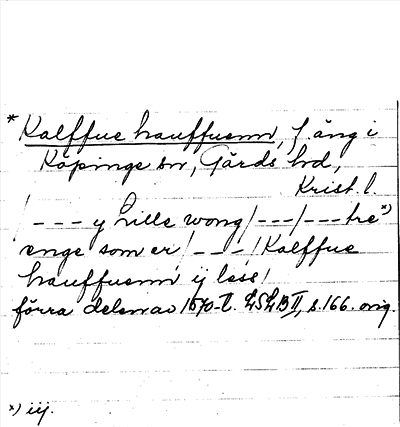 * Kalffue hauffuenn, f. äng i
Köpinge sn, Gärds hd,
Krist. l.
/ --- y Lille wong /---/---tre *)
enge som er /---/ Kalffue
hauffuenn ij less /
förra delen av 1570-t. LSLB II, s. 166. orig.
*) iij.